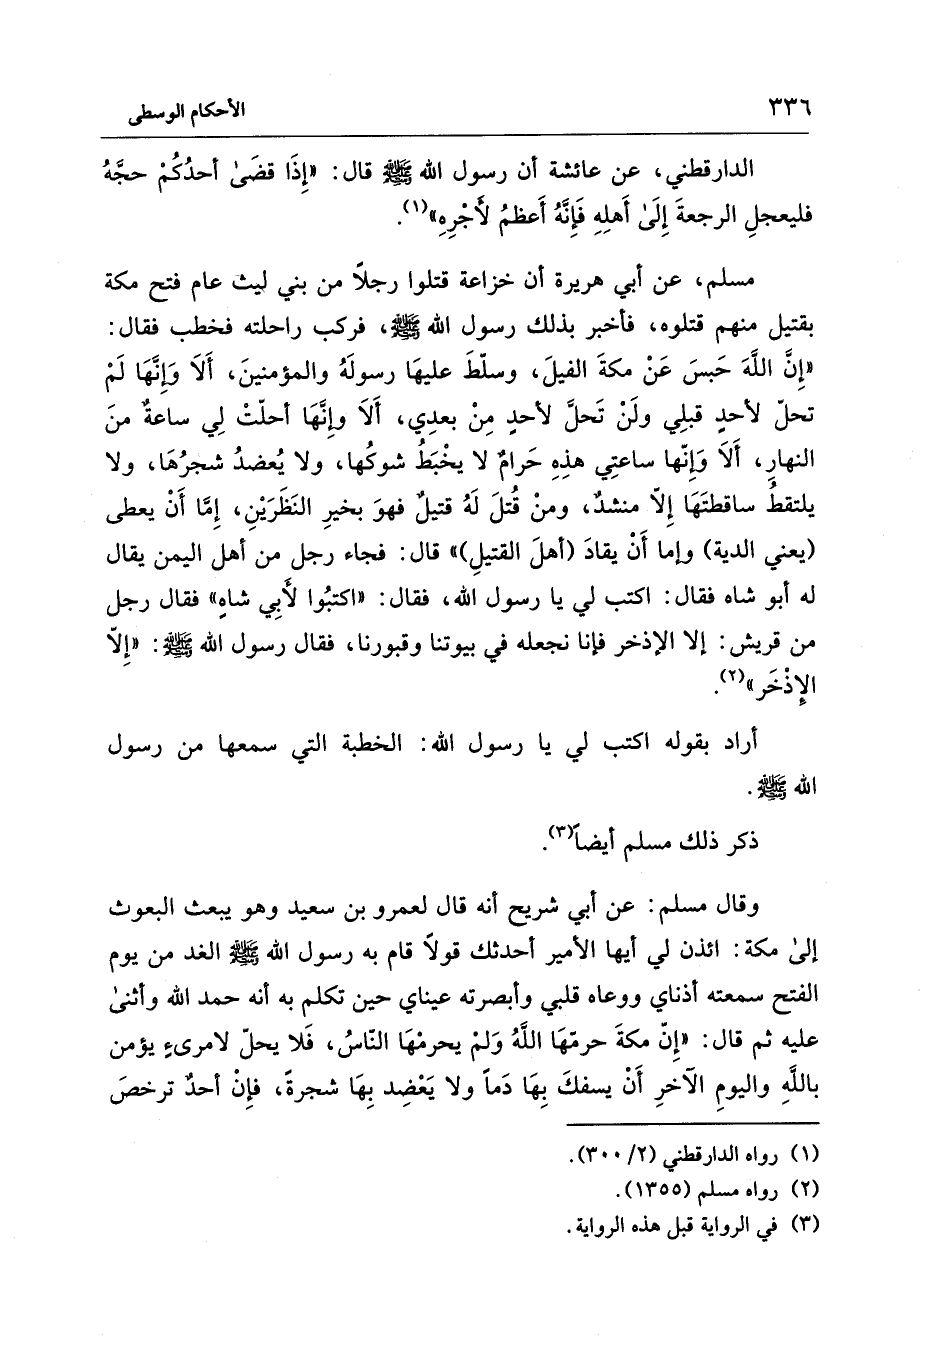 ٣٣٦
الأحكام الوسطى
الدارقطني، عن عائشة أن رسول الله ﷺ قال: «إِذَا قضَىٰ أحدُكُمْ حجَّهُ
فليعجلِ الرجعةَ إِلَىٰ أَهلِهِ فَإِنَّهُ أَعظمُ لأَجْرِهِ»(١).
مسلم، عن أبي هريرة أن خزاعة قتلوا رجلاً من بني ليث عام فتح مكة
بقتيل منهم قتلوه، فأخبر بذلك رسول الله ﷺ، فركب راحلته فخطب فقال:
«إِنَّ اللَّهَ حَبسَ عَنْ مكةَ الفيلَ، وسلّطَ عليهَا رسولَهُ والمؤمنينَ، أَلَا وَإِنَّهَا لَمْ
تحلّ لأحدٍ قبلِي ولَنْ تَحلَّ لأحدٍ مِنْ بعدِي، أَلَا وإِنَّهَا أحلّتْ لِي ساعةٌ منَ
النهارِ، أَلَا وَإِنّها ساعتِي هذِهِ حَرامٌ لا يخْبَطُ شوكُها، ولا يُعضدُ شجرُهَا، ولا
يلتقطُ ساقطتَهَا إِلّا منشدٌ، ومنْ قُتلَ لَهُ قتيلٌ فهوَ بخيرِ النَظَرَيْنِ، إِمَّا أَنْ يعطى
(يعني الدية) وإما أَنْ يقادَ (أهلَ القتيلِ)» قال: فجاء رجل من أهل اليمن يقال
له أبو شاه فقال: اكتب لي يا رسول الله، فقال: «اكتبُوا لأَبي شاهٍ» فقال رجل
من قريش: إلا الإذخر فإنا نجعله في بيوتنا وقبورنا، فقال رسول الله ﷺ: «إِلّا
الإِذْخَر»(٢).
أراد بقوله اكتب لي يا رسول الله: الخطبة التي سمعها من رسول
الله ﷺ.
ذكر ذلك مسلم أيضاً(٣).
وقال مسلم: عن أبي شريح أنه قال لعمرو بن سعيد وهو يبعث البعوث
إلىٰ مكة: ائذن لي أيها الأمير أحدثك قولاً قام به رسول الله ﷺ الغد من يوم
الفتح سمعته أذناي ووعاه قلبي وأبصرته عيناي حين تكلم به أنه حمد الله وأثنىٰ
عليه ثم قال: «إِنّ مكةَ حرمّهَا اللَّهُ وَلمْ يحرمْهَا النّاسُ، فَلا يحلّ لامرىءٍ يؤمن
باللَّهِ واليومِ الآخرِ أَنْ يسفكَ بِهَا دَماً ولا يَعْضِد بِهَا شجرةً، فإِنْ أحدٌ ترخصَ
(١) رواه الدارقطني (٢/ ٣٠٠).
(٢) رواه مسلم (١٣٥٥).
(٣) في الرواية قبل هذه الرواية.